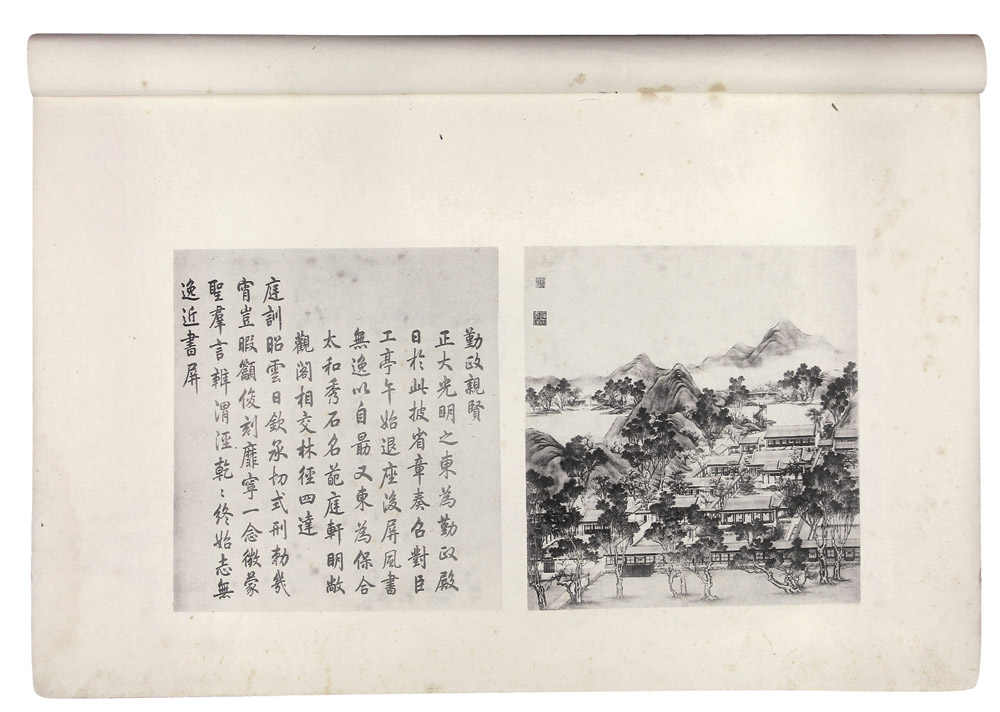 勤政親賢
正大光明之東為勤政殿
日於此披省章奏召對臣
工亭午始退座後屏風書
無逸以自勗又東為保合
太和秀石名葩庭軒明敞
觀閣相交林徑四達
庭訓昭雲日欽承切式刑勅幾
宵豈暇籲俊刻靡寧一念徹蒙
聖羣言辨渭涇乾〻終始志無
逸近書屏